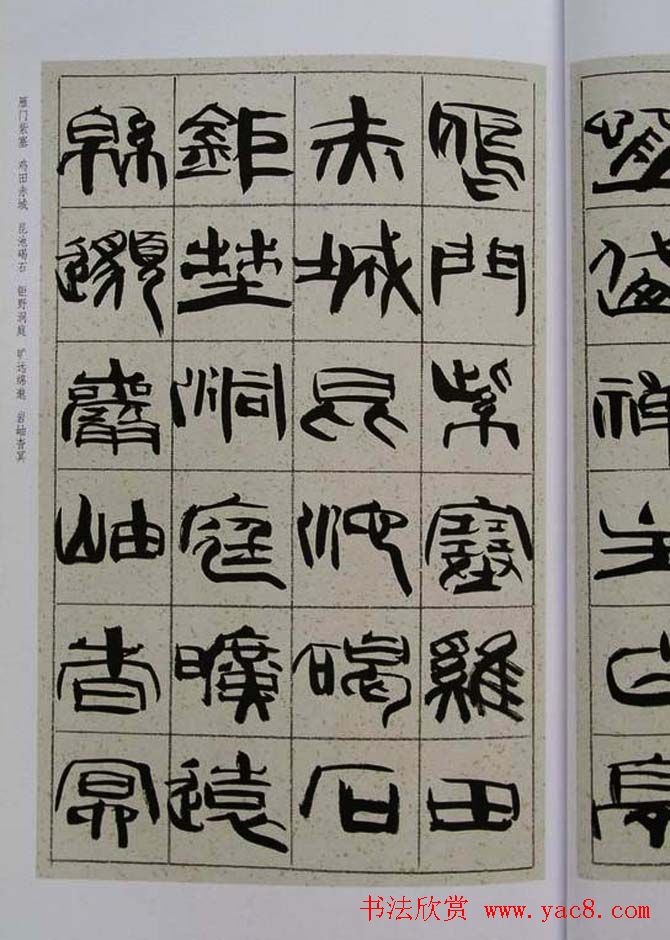 禪主云亭
鴈門紫塞雞田
赤城昆池碣石
鉅埜洞庭曠遠
緜邈巖岫杳冥
雁门紫塞 鸡田赤城 昆池碣石 钜野洞庭 旷远绵邈 岩岫杳冥
书法欣赏 www.yac8.com